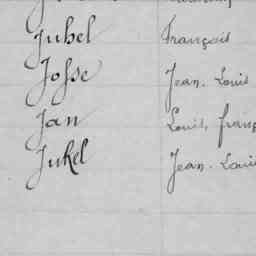 Juhel François
Josse Jean. Louis
Jan Louis, franç
Jukel Jean. Loui